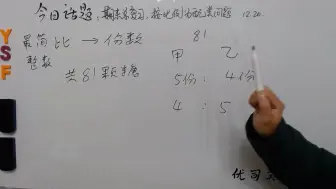 今日话题：期末总复习，按比例分配类问题 12.20.
最简比 → 份数
整数
共81颗糖
81
甲 乙
5份 : 4份
4 : 5
优司
YSF